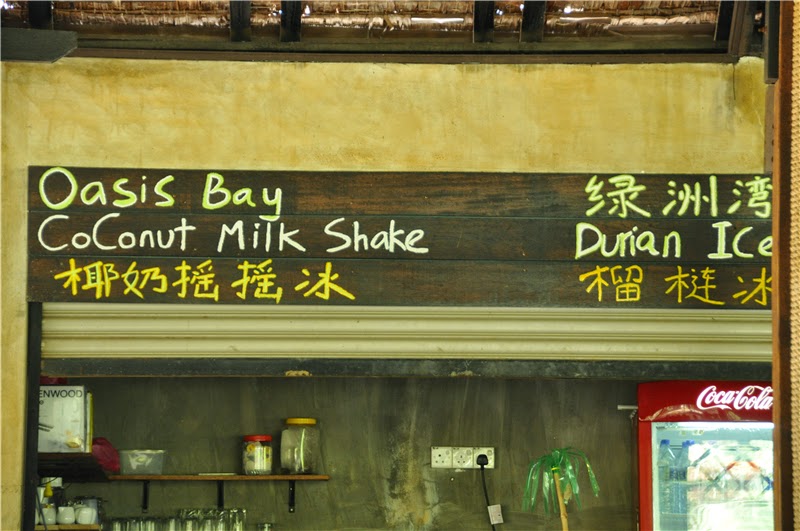 Oasis Bay 绿洲湾
CoConut Milk Shake Durian ICe
椰奶摇摇冰 榴梿冰
ENWOOD
Coca-Cola